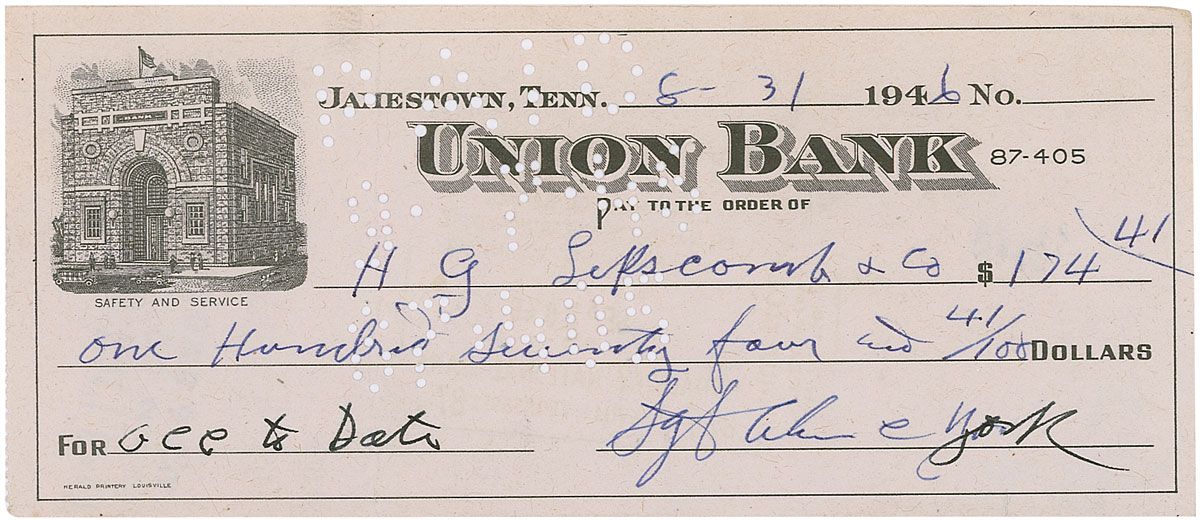 BANK
JAMESTOWN, TENN. 8-31 1946 No.
UNION BANK 87-405
PAY TO THE ORDER OF
H G Lipscomb & Co $ 174 41
SAFETY AND SERVICE
one Hundrid seventy four and 41/100 DOLLARS
FOR acc to Date Sgt Alvin C York
HERALD PRINTERY LOUISVILLE